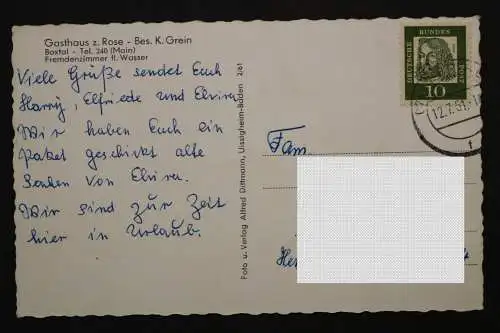 Gasthaus z. Rose - Bes. K. Grein
Boxtal - Tel. 240 (Main)
Fremdenzimmer fl. Wasser
Viele Grüße sendet Euch
Harry, Elfriede und Elvira
Wir haben Euch ein
Paket geschickt alte
Sachen von Elvira.
Wir sind zur Zeit
hier in Urlaub.
Foto u. Verlag Alfred Dittmann, Uissigheim-Baden 2/61
DEUTSCHE BUNDES POST
10
12.7.61
Fam.